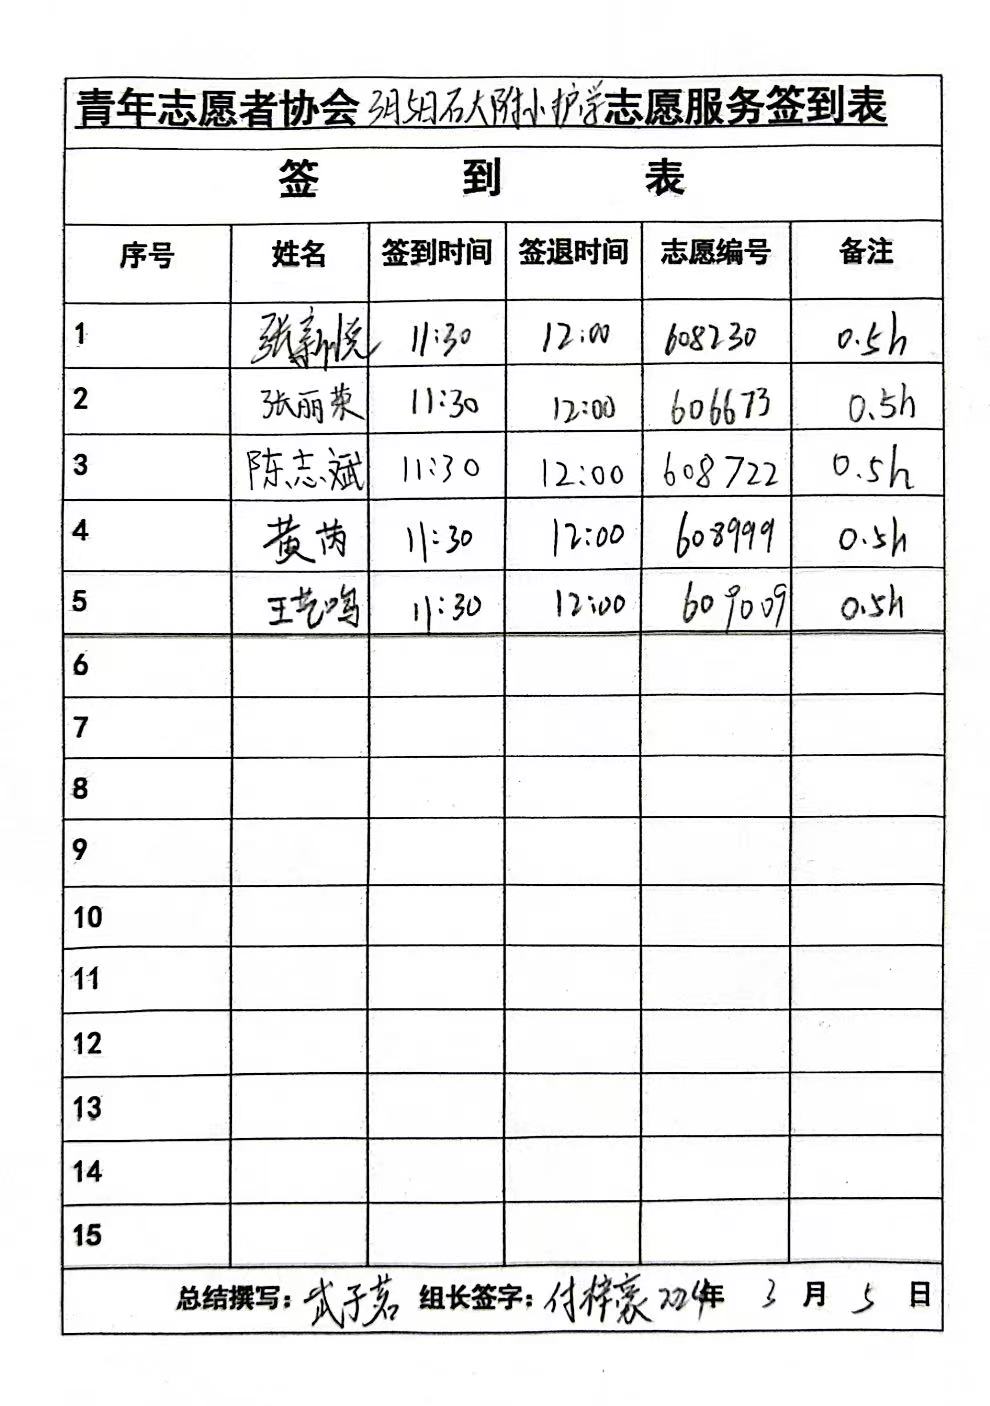 青年志愿者协会3月5日石大附小护学志愿服务签到表
签 到 表
序号 姓名 签到时间 签退时间 志愿编号 备注
1 张新悦 11:30 12:00 608230 0.5h
2 张丽荣 11:30 12:00 606673 0.5h
3 陈志斌 11:30 12:00 608722 0.5h
4 黄芮 11:30 12:00 608999 0.5h
5 王艺鸣 11:30 12:00 609009 0.5h
6
7
8
9
10
11
12
13
14
15
总结撰写：武子茗 组长签字：付梓豪 2024年 3 月 5 日